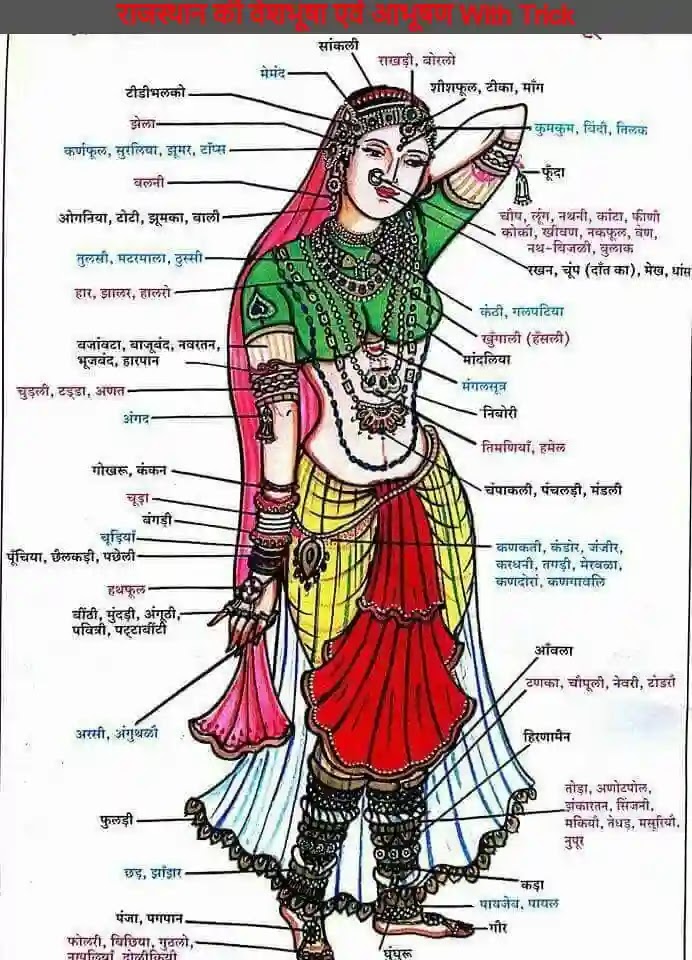 राजस्थान की वेशभूषा एवं आभूषण With Trick
सांकली
राखड़ी, बोरलो
मेमंद
शीशफूल, टीका, माँग
टीडीभलको
झेला
कुमकुम, बिंदी, तिलक
कर्णफूल, सुरलिया, झूमर, टॉप्स
फूँदा
बलनी
ओगनिया, टोटी, झूमका, बाली
चीप, लूंग, नथनी, कांटा, फीणी
कोकी, खीवण, नकफूल, वेण,
नथ-बिजली, बुलाक
तुलसी, मटरमाला, ठुस्सी
रखन, चूंप (दाँत का), मेख, धांस
हार, झालर, हालरो
कंठी, गलपटिया
खुँगाली (हँसली)
बजांवटा, बाजूबंद, नवरतन,
भूजबंद, हारपान
मांदलिया
चुड़ली, टड्डा, अणत
मंगलसूत्र
अंगद
निबोरी
तिमणियाँ, हमेल
गोखरू, कंकन
चंपाकली, पंचलड़ी, मंडली
चूड़ा
बंगड़ी
चूड़ियाँ
पूँचिया, छैलकड़ी, पछेली
कणकती, कंडोर, जंजीर,
करधनी, तगड़ी, मेरवळा,
कणदोरां, कणगावलि
हथफूल
बींठी, मुंदड़ी, अंगूठी,
पवित्री, पट्टाबींटी
आँवला
टणका, चौपूली, नेवरी, टांडरौ
अरसी, अंगुथळौ
हिरणामैन
तोड़ा, अणोटपोल,
झंकारतन, सिंजनी,
मकियौ, तेधड़, मसूरियौ,
नुपूर
फुलड़ी
छड़, झाँझर
कड़ा
पायजेब, पायल
पंजा, पगपान
गौर
फोलरी, बिछिया, गुठलो,
घुंघरू